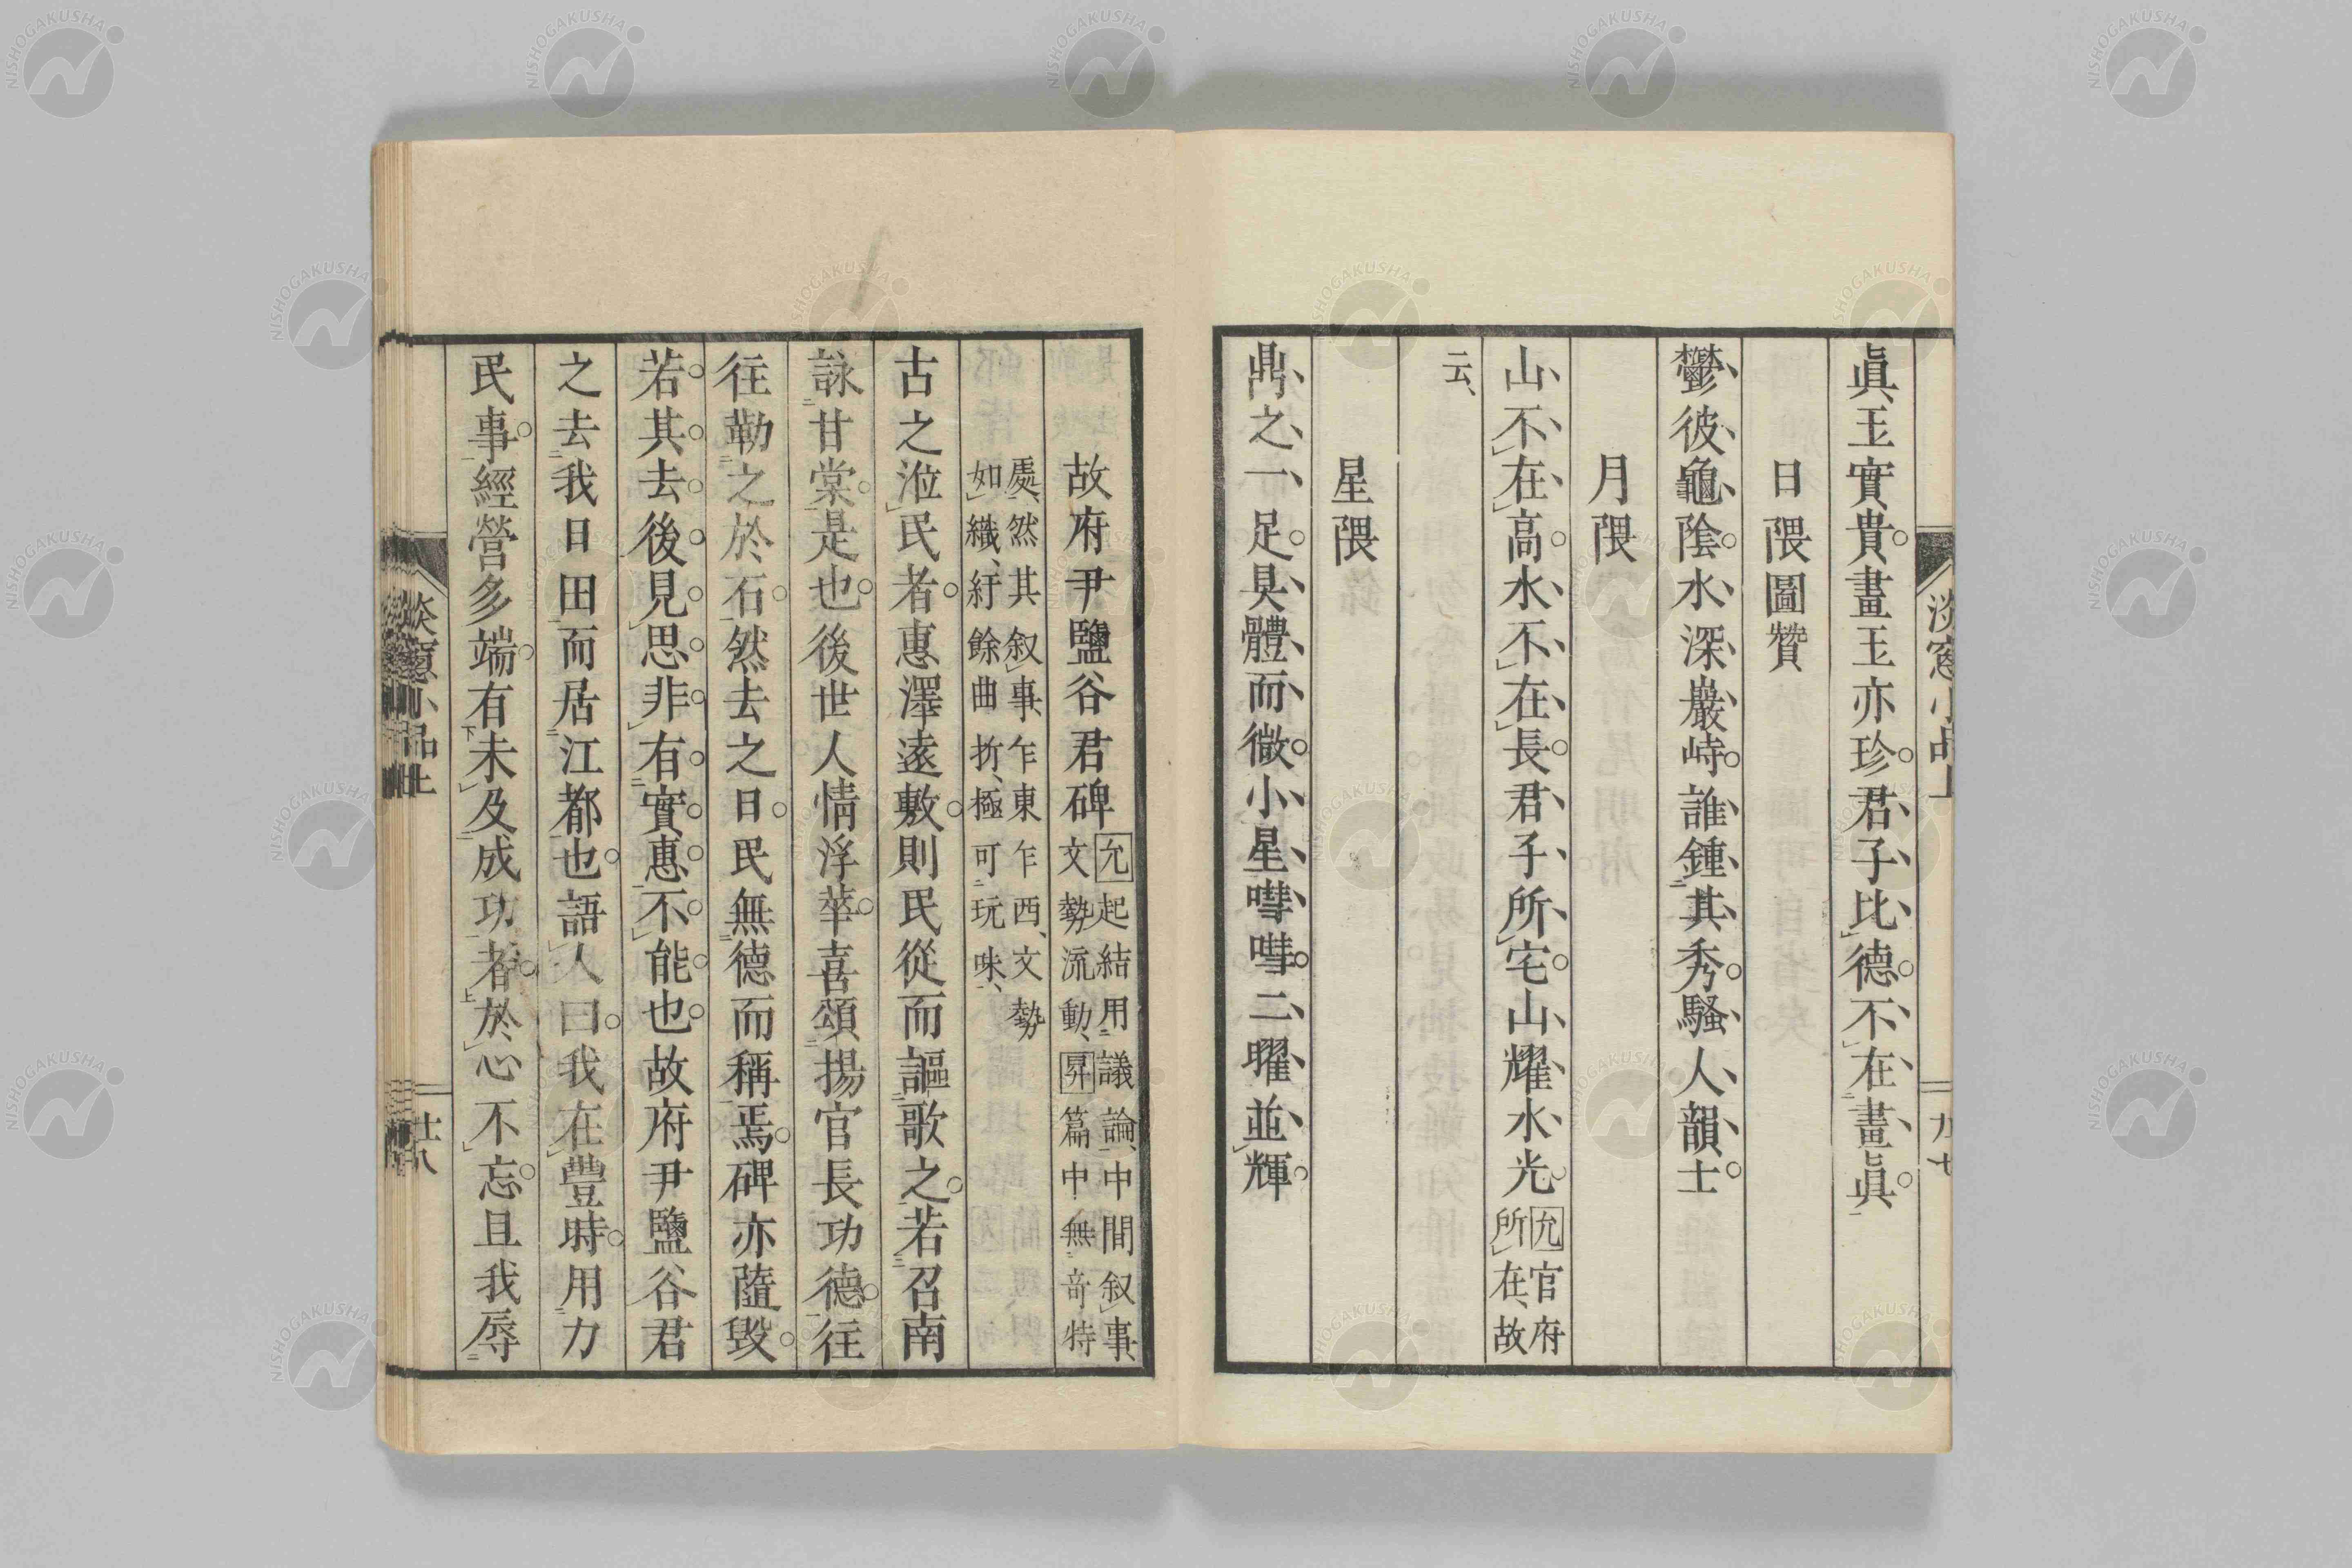 眞玉實貴畫玉亦珍君子比德不在畫眞
日隈圖贊
鬱彼龜陰水深巖峙誰鍾其秀騷人韻士
月隈
山不在高水不在長君子所宅山耀水光允官府
所在故
云
星隈
鼎之一足具體而微小星嘒嘒二曜並輝
淡窻小品上
故府尹鹽谷君碑允起結用議論中間叙事
文勢流動昇篇中無奇特
處然其叙事乍東乍西文勢
如織紆餘曲折極可玩味
古之涖民者惠澤遠敷則民從而謳歌之若召南
詠甘棠是也後世人情浮華喜頌揚官長功德往
往勒之於石然去之日民無德而稱焉碑亦隨毀
若其去後見思非有實惠不能也故府尹鹽谷君
之去我日田而居江都也語人曰我在豐時用力
民事經營多端有未及成功者於心不忘且我辱
淡窻小品上
廿八
NISHOGAKUSHA